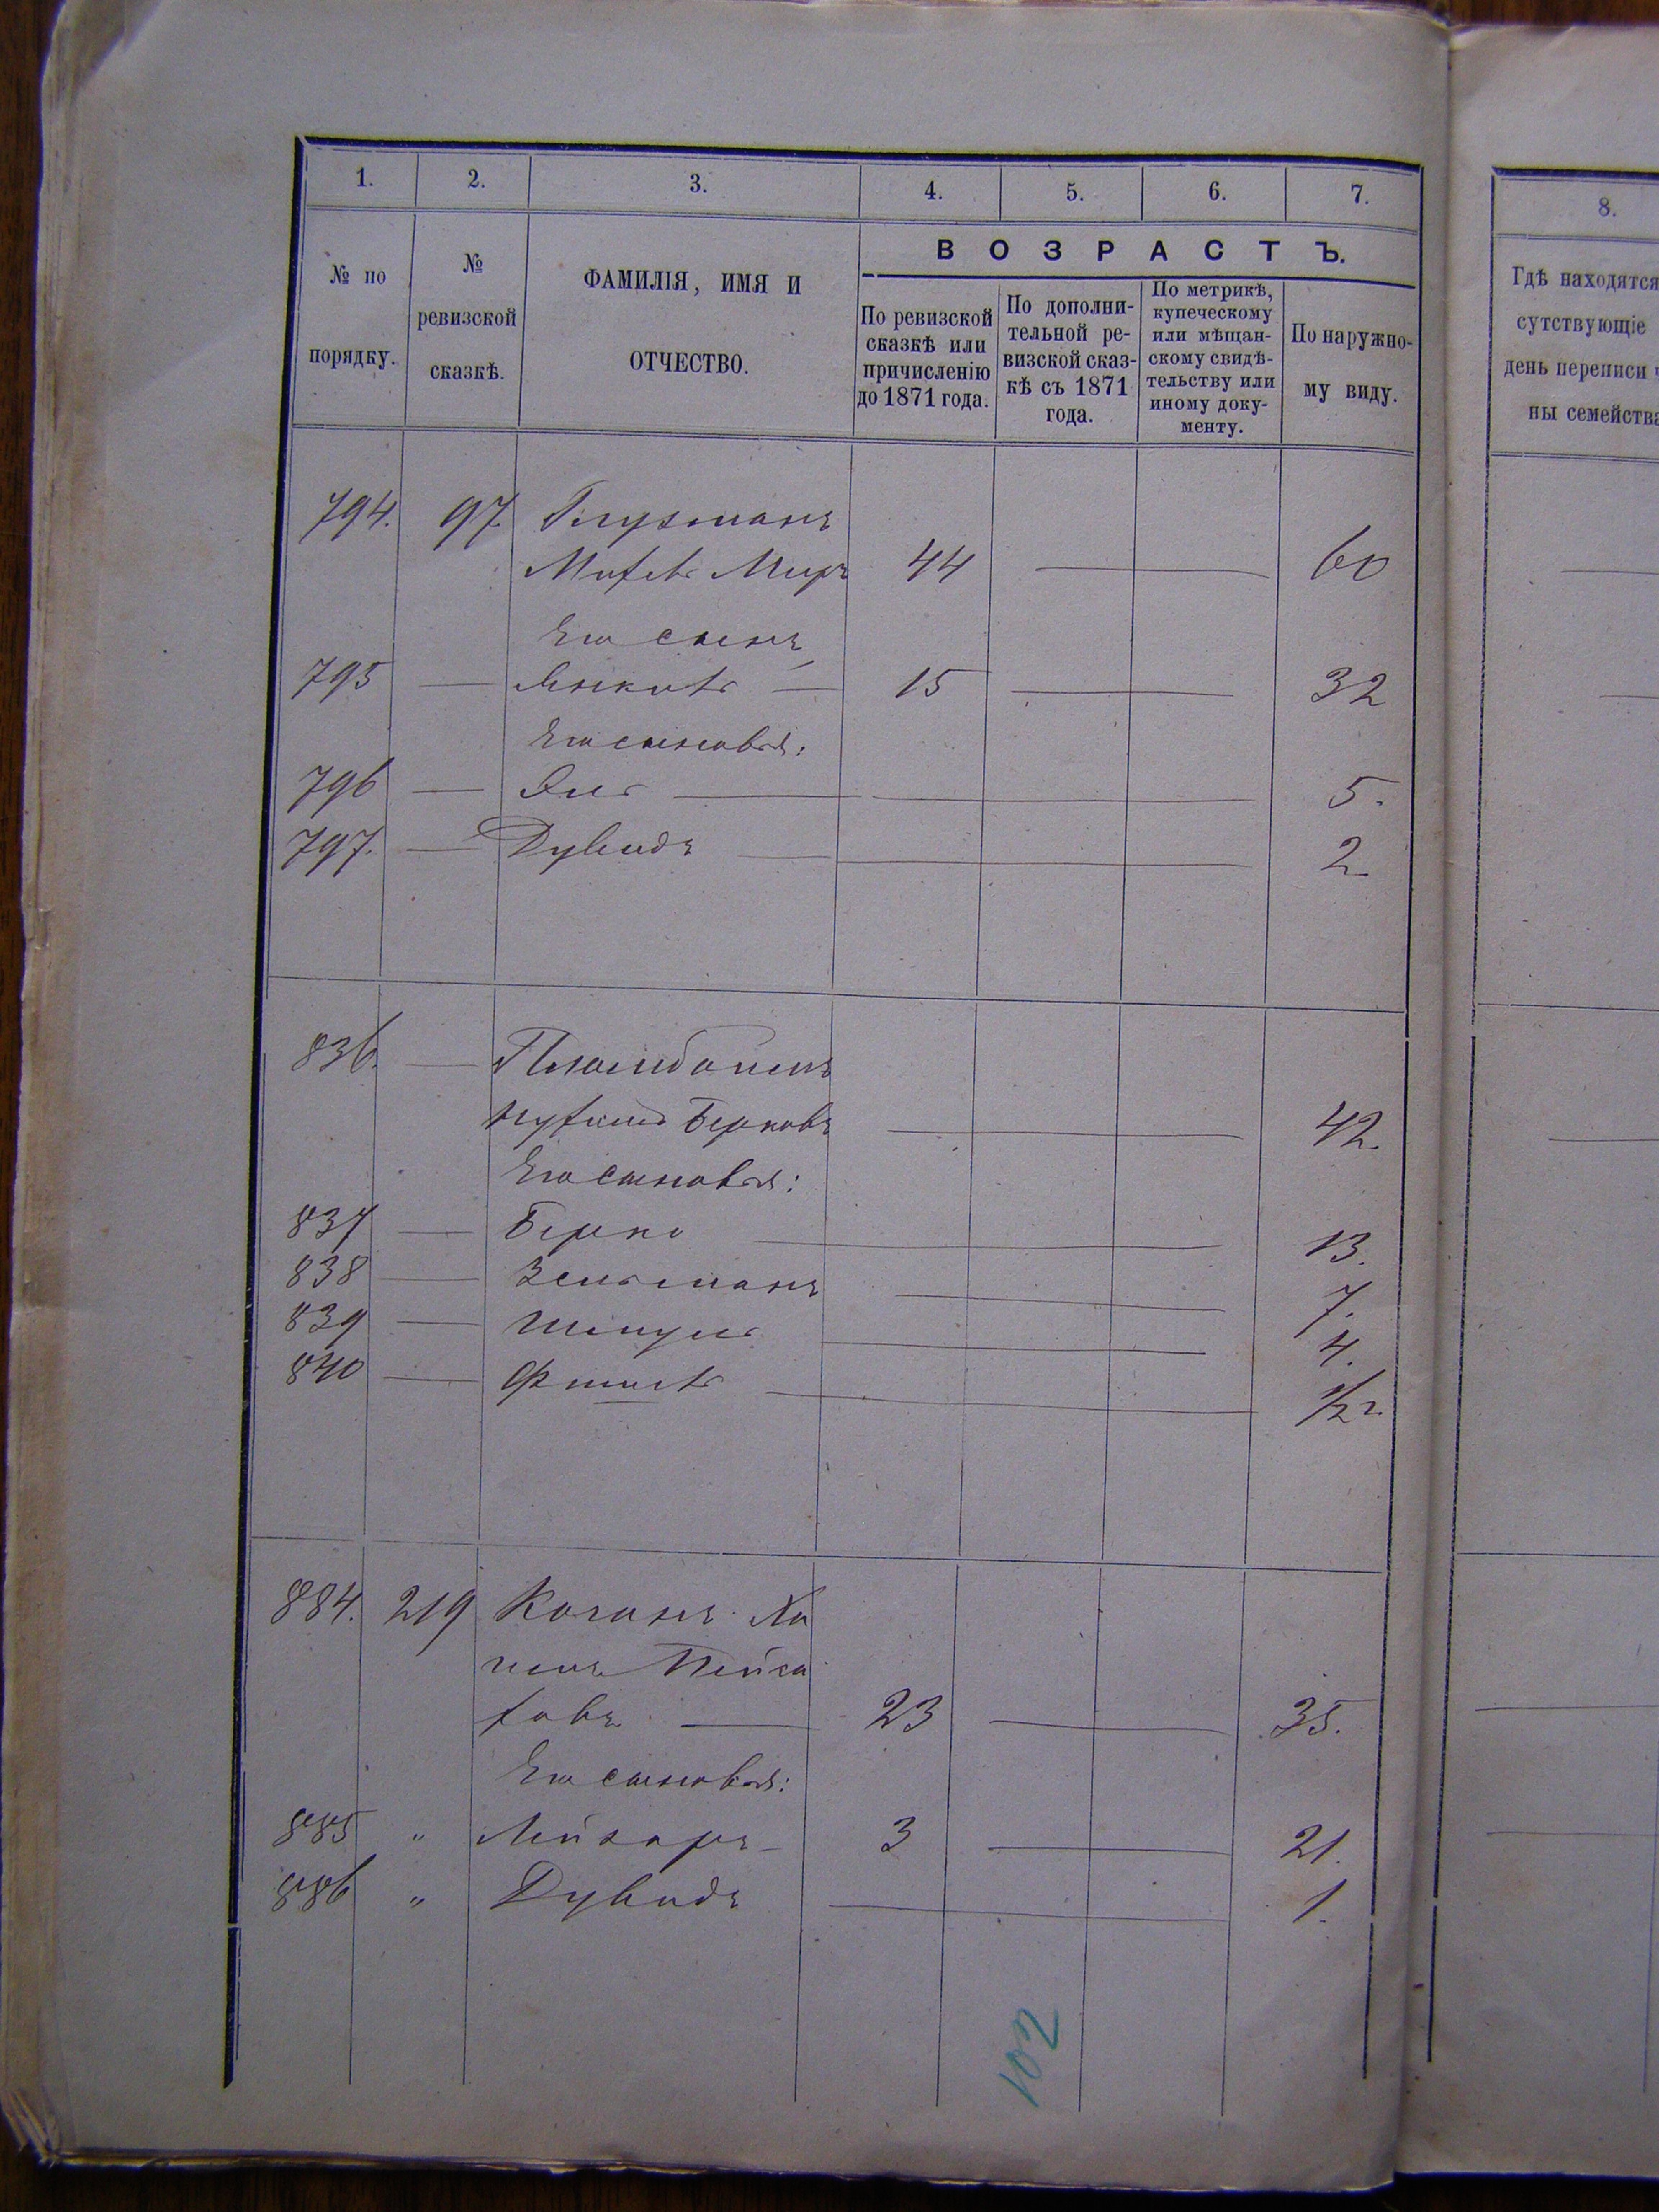 1. 2. 3. 4. 5. 6. 7.
8.
№ по порядку.
№ ревизской сказкѣ.
ФАМИЛІЯ, ИМЯ И ОТЧЕСТВО.
ВОЗРАСТЪ.
По ревизской сказкѣ или причисленію до 1871 года.
По дополни-
тельной ре-
визской сказ-
кѣ съ 1871 года.
По метрикѣ,
купеческому
или мѣщан-
скому свидѣ-
тельству или
иному доку-
менту.
По наружно-
му виду.
Гдѣ находятся
сутствующіе
день переписи
ны семейства
794. 97. Глузманъ
Мир 44 — — 60
Его сынъ
795 — Янкель — 15 — — 32
Его сыновья:
796 — Эль — 5.
797. — Дувидъ — 2.
836. —
Берковъ — 42.
Его сыновья:
837 — Берко — 13.
838 — Зельманъ — 7.
839 — Шмуль — 4.
840 — — 1/2 г.
884. 219 Коганъ Ха
имъ Пейса
ховъ — 23 — — 35.
Его сыновья:
885 " Лейзоръ — 3 — — 21.
886 " Дувидъ — 1.
102